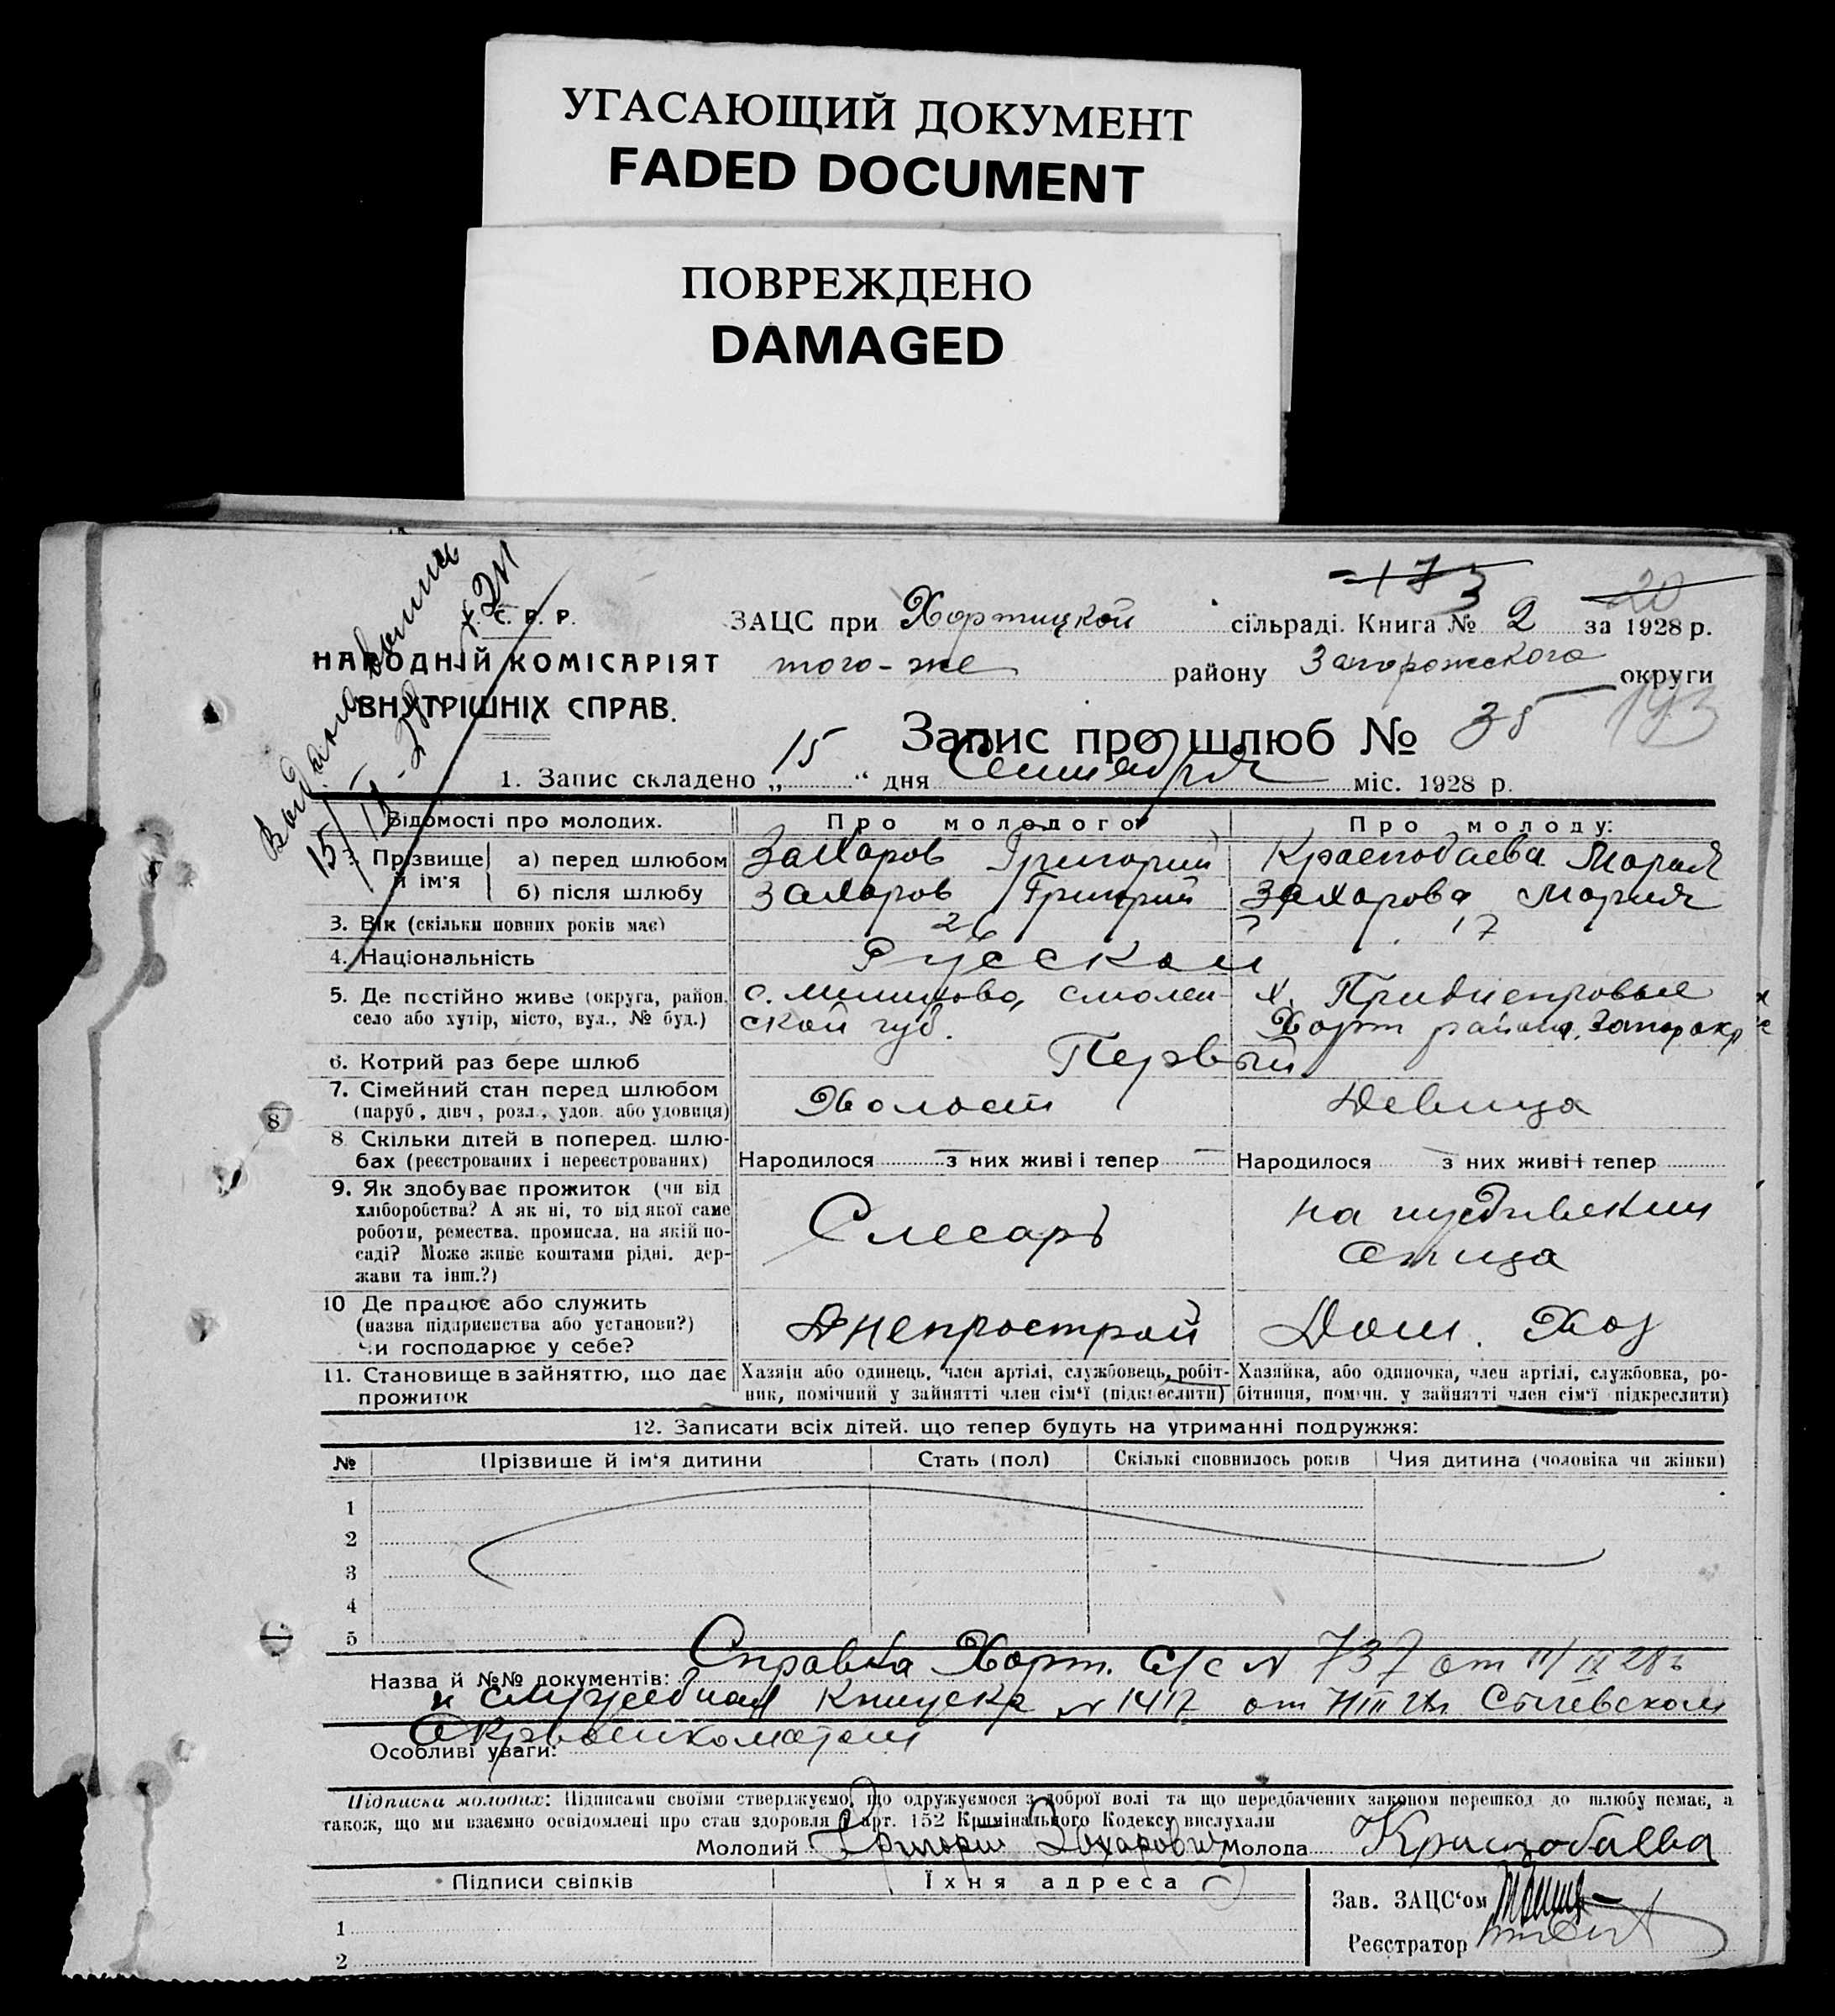 УГАСАЮЩИЙ ДОКУМЕНТ
FADED DOCUMENT
ПОВРЕЖДЕНО
DAMAGED
173 20
С. Р. Р.
ЗАЦС при Хортицкой сільраді. Книга № 2 за 1928 р.
НАРОДНІЙ КОМІСАРІЯТ
ВНУТРІШНІХ СПРАВ.
того-же району Запорожского округи
Запис про шлюб № 35 193
1. Запис складено „15“ дня Сентября міс. 1928 р.
Відомості про молодих. Про молодого: Про молоду:
Прізвище й ім'я а) перед шлюбом Захаров Григорий Краснобаева Мария
б) після шлюбу Захаров Григорий Захарова Мария
3. Вік (скільки повних років має) 26 17
4. Національність Русские
5. Де постійно живе (округа, район, село або хутір, місто, вул., № буд.)
с. смоленской губ.
х. Приднепровье Хорт района, Запор окр
6. Котрий раз бере шлюб Первый
7. Сімейний стан перед шлюбом (паруб., дівч., розл., удов. або удовиця) Холост Девица
8
8. Скільки дітей в поперед. шлюбах (реєстрованих і нереєстрованих) Народилося з них живі і тепер Народилося з них живі і тепер
9. Як здобуває прожиток (чи від хліборобства? А як ні, то від якої саме роботи, ремества, промисла, на якій посаді? Може живе коштами рідні, держави та інш.?)
Слесарь
на иждивении отца
10 Де працює або служить (назва підприємства або установи?) Чи господарює у себе? Днепрострой Дом. Хоз
11. Становище в зайняттю, що дає прожиток
Хазяїн або одинець, член артілі, службовець, робітник, помічний у зайнятті член сім'ї (підкреслити)
Хазяйка, або одиночка, член артілі, службовка, робітниця, помічн. у зайнятті член сім'ї підкреслити)
12. Записати всіх дітей, що тепер будуть на утриманні подружжя:
№ Прізвище й ім'я дитини Стать (пол) Скількі сповнилось років Чия дитина (чоловіка чи жінки)
1
2
3
4
5
Назва й №№ документів: Справка Хорт. с/с № 737 от 11/IX 28 г
и служебная книжка № 1417 от Сычевском
Окрвоенкоматом
Особливі уваги:
Підписка молодих: Підписами своїми стверджуємо, що одружуємося з доброї волі та що передбачених законом перешкод до шлюбу немає, а
також, що ми взаємно освідомлені про стан здоровля й арт. 152 Кримінального Кодексу вислухали
Молодий Григорий Захарович Молода Краснобаева
Підписи свідків Їхня адреса
1
2
Зав. ЗАЦС'ом
Реєстратор